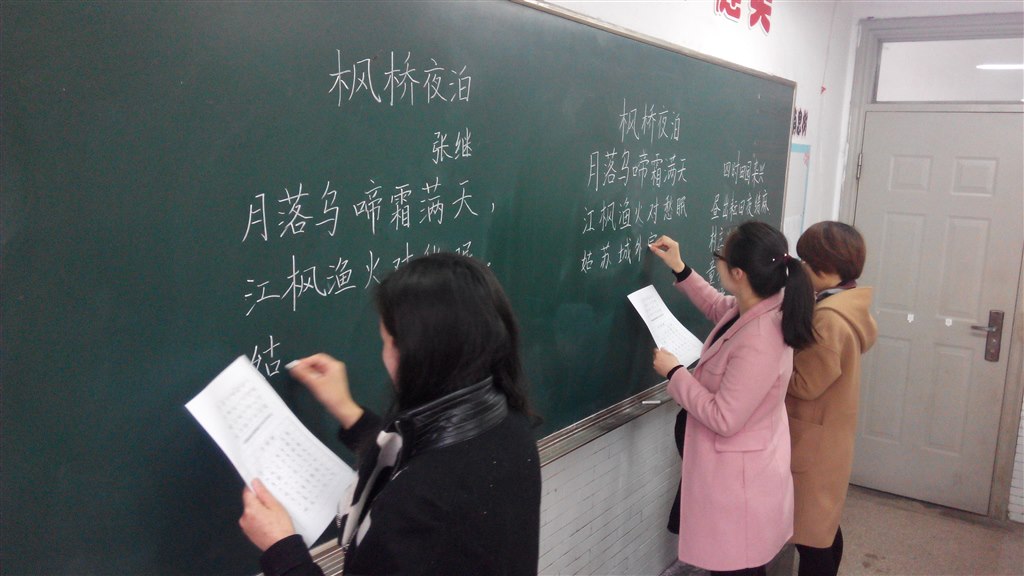 枫桥夜泊
张继
月落乌啼霜满天，
江枫渔火对愁眠，
姑
枫桥夜泊
月落乌啼霜满天
江枫渔火对愁眠
姑苏城外
四时田园杂兴
昼出耘田夜绩麻
村
童